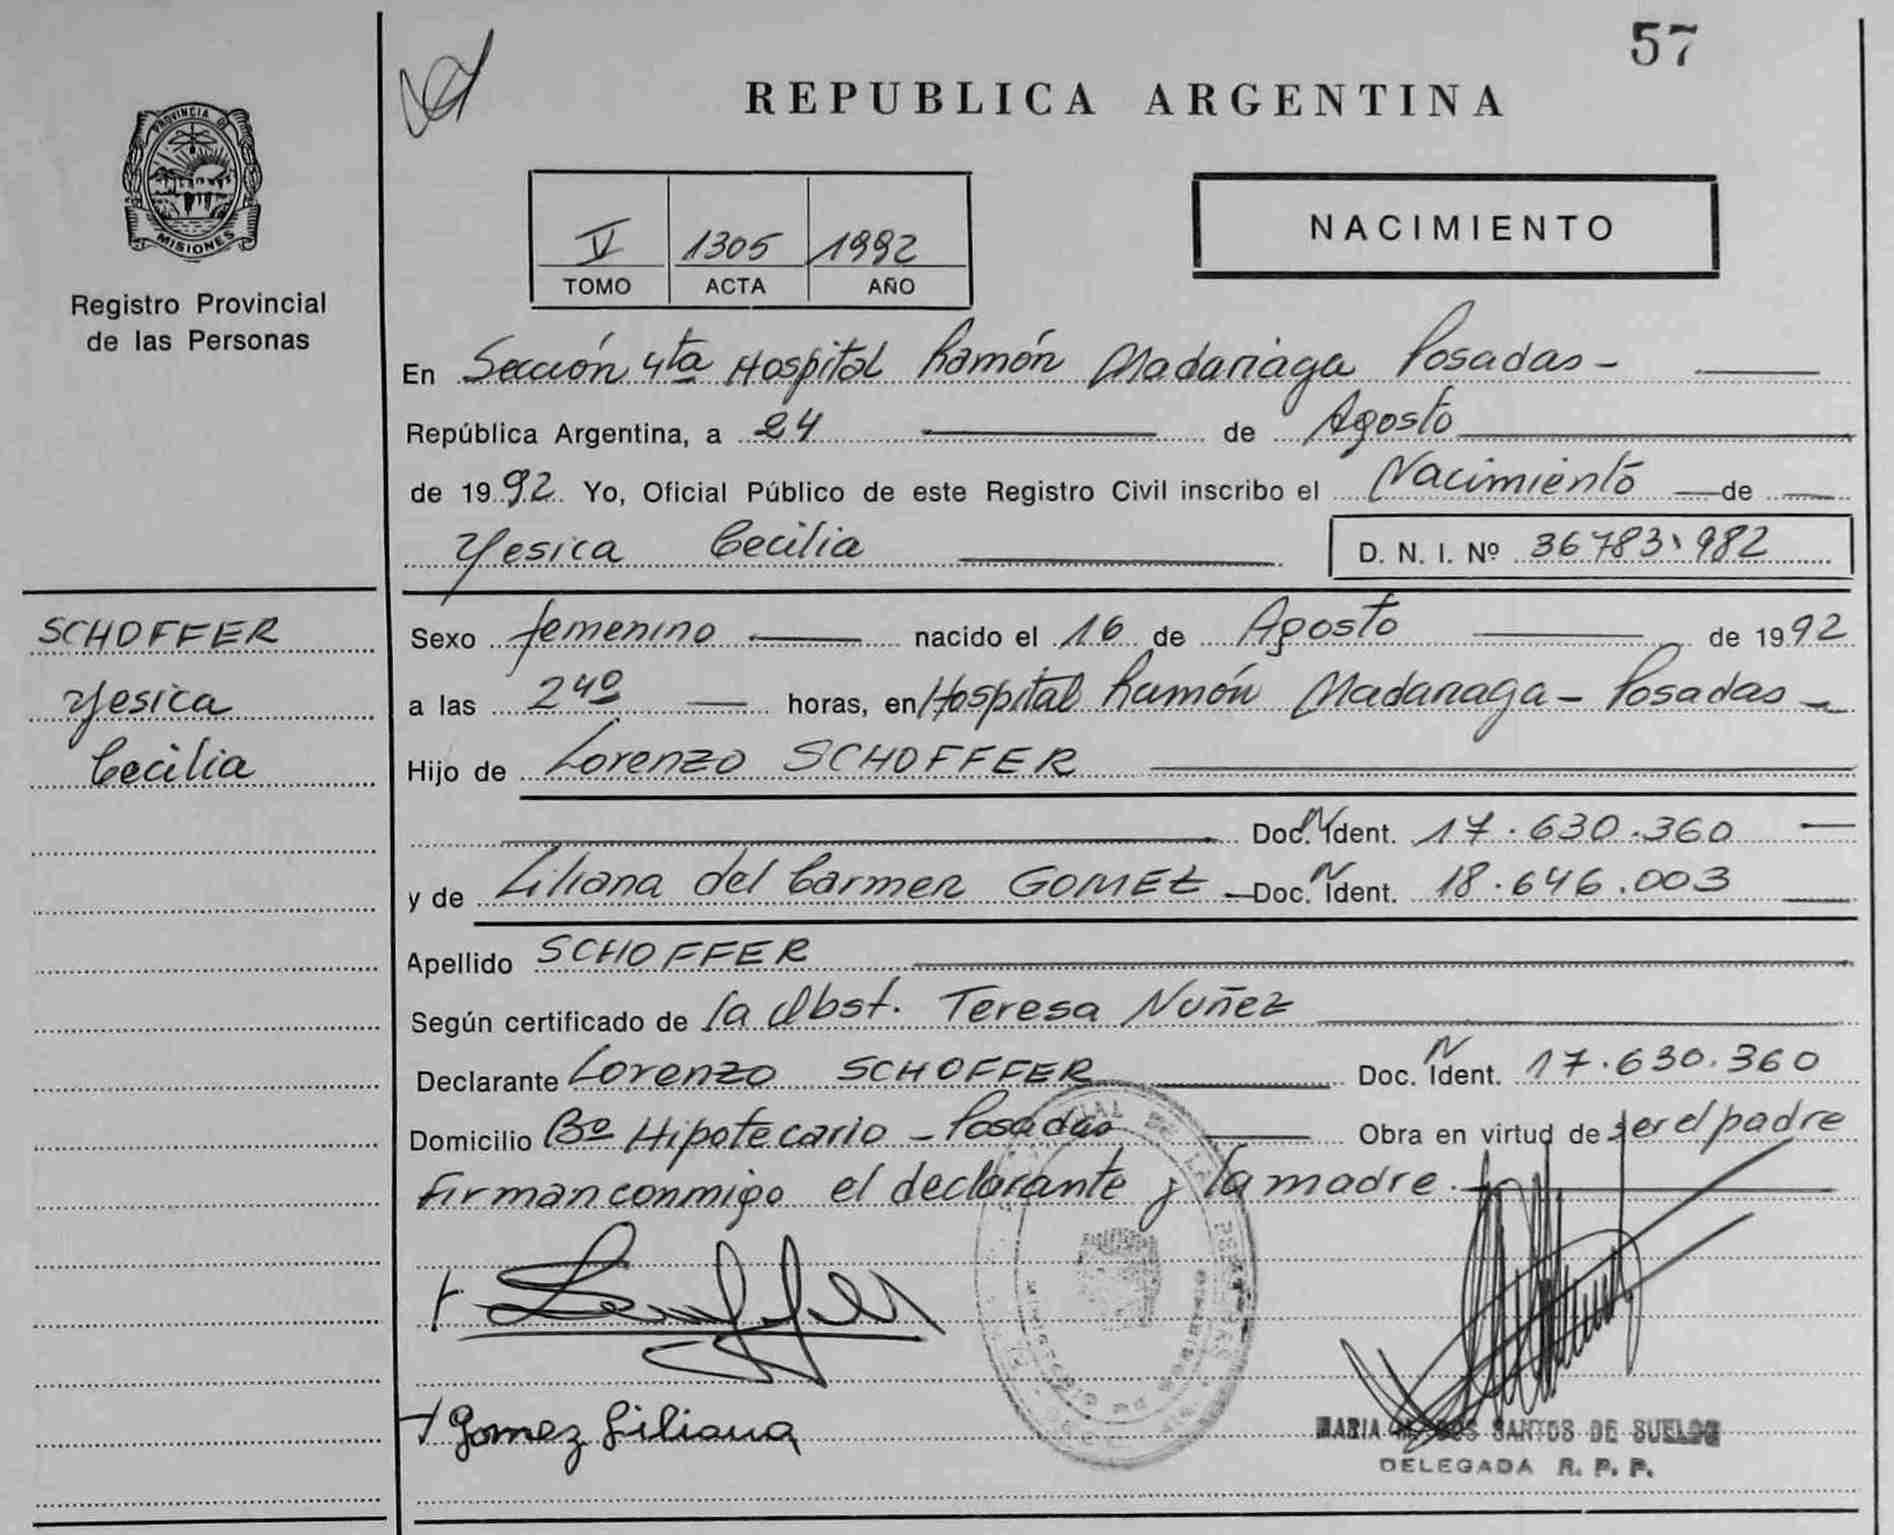 57
REPUBLICA ARGENTINA
PROVINCIA DE
MISIONES
Registro Provincial
de las Personas
V 1305 1992
TOMO ACTA AÑO
NACIMIENTO
En Sección 4ta Hospital Ramón Madariaga Posadas -
República Argentina, a 24 de Agosto
de 1992 Yo, Oficial Público de este Registro Civil inscribo el Nacimiento de
Yesica Cecilia D. N. I. Nº 36783.982
SCHOFFER
Yesica
Cecilia
Sexo femenino nacido el 16 de Agosto de 1992
a las 24º horas, en Hospital Ramón Madariaga - Posadas -
Hijo de Lorenzo SCHOFFER
Doc. N Ident. 17.630.360
y de Liliana del Carmen GOMEZ Doc. N Ident. 18.646.003
Apellido SCHOFFER
Según certificado de la Obst. Teresa Nuñez
Declarante Lorenzo SCHOFFER Doc. N Ident. 17.630.360
Domicilio Bº Hipotecario - Posadas Obra en virtud de ser el padre
firman conmigo el declarante y la madre.
Gomez Liliana
MARIA DOS SANTOS DE SUELDO
DELEGADA R. P. P.